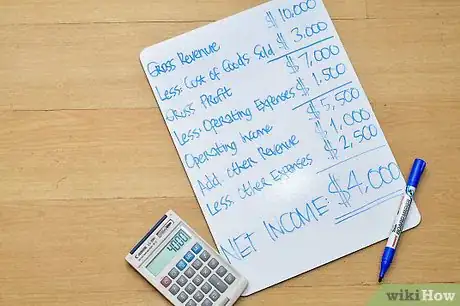 GROSS Revenue $ 10,000
Less: Cost of Goods Sold $ 3,000
GROSS Profit $ 7,000
Less: Operating Expenses $ 1,500
Operating Income $ 5,500
Add: other Revenue $ 1,000
Less: other Expenses $ 2,500
NET INCOME: $4,000
4000
wikiHow